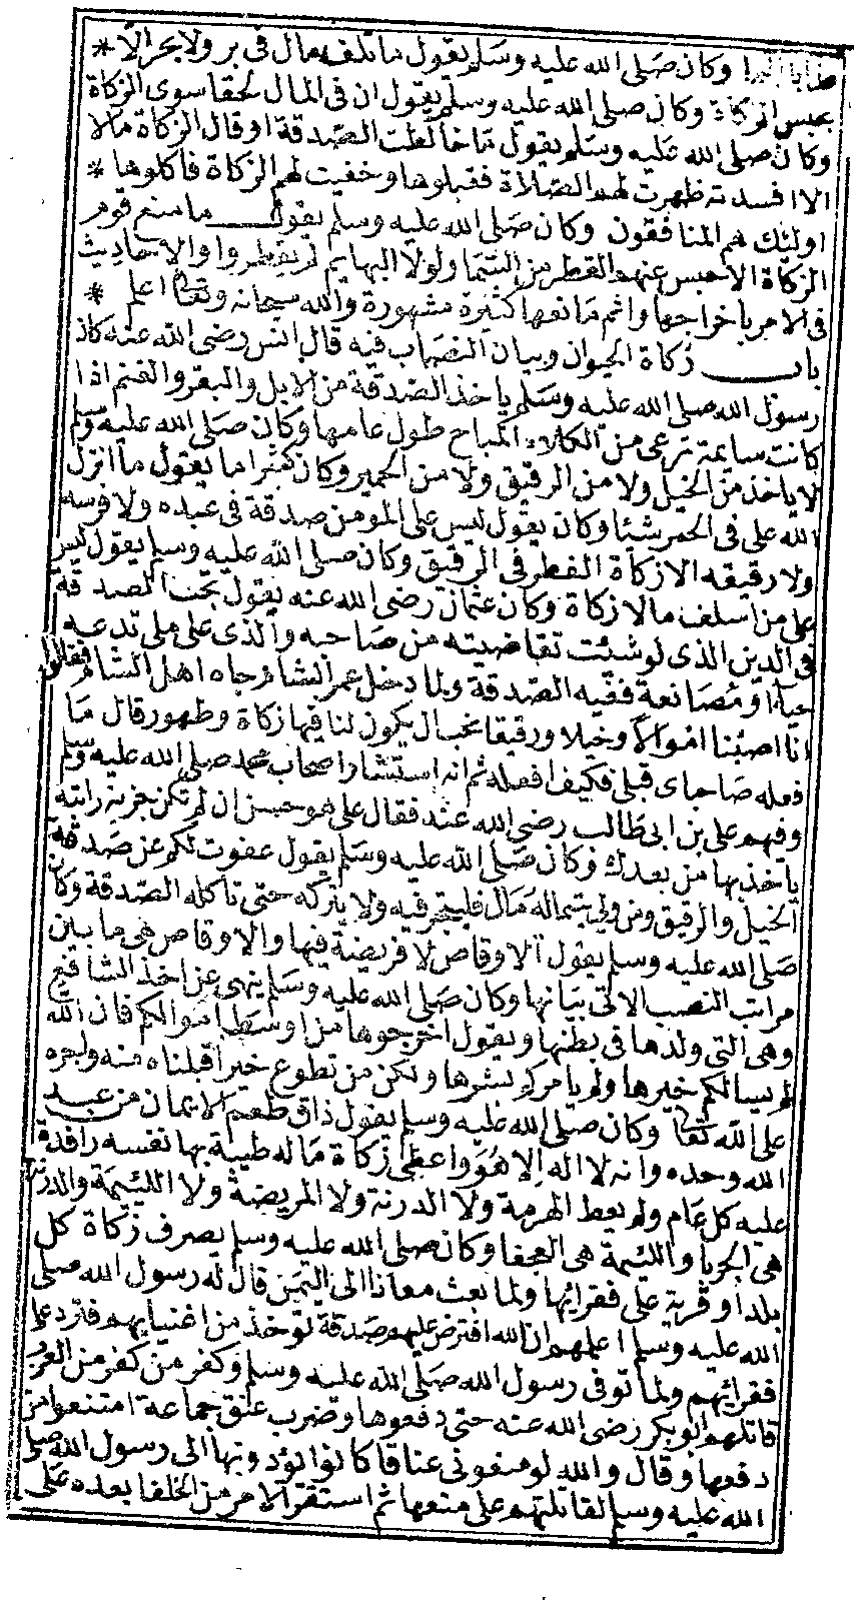 وكان صلى الله عليه وسلم يقول ما تلف مال فى بر ولا بحر الا *
بحبس الزكاة وكان صلى الله عليه وسلم يقول ان فى المال لحقا سوى الزكاة
وكان صلى الله عليه وسلم يقول ما خالطت الصدقة او قال الزكاة مالا
الا افسدته ظهرت لهم الصلاة فقبلوها وخفيت لهم الزكاة فاكلوها *
اولئك هم المنافقون وكان صلى الله عليه وسلم يقول ما منع قوم
الزكاة الا حبس عنهم القطر من السما ولولا البهايم لم يمطروا والاحاديث
فى الامر باخراجها واثم مانعها كثيرة مشهورة والله سبحانه وتعالى اعلم *
باب زكاة الحيوان وبيان النصاب فيه قال انس رضى الله عنه كان
رسول الله صلى الله عليه وسلم ياخذ الصدقة من الابل والبقر والغنم اذا
كانت سايمة ترعى من الكلاء المباح طول عامها وكان صلى الله عليه وسلم
لا ياخذ من الخيل ولا من الرقيق ولا من الحمير وكان كثيرا ما يقول ما انزل
الله على فى الحمر شيئا وكان يقول ليس على المومن صدقة فى عبده ولا فرسه
ولا رقيقه الا زكاة الفطر فى الرقيق وكان صلى الله عليه وسلم يقول ليس
على من اسلف مالا زكاة وكان عثمان رضى الله عنه يقول تجب الصدقة
فى الدين الذى لو شئت تقاضيته من صاحبه والذى على ملى تدعه
حياء او مصانعة ففيه الصدقة ولما دخل عمر الشام جاه اهل الشام فقالوا
انا اصبنا اموالا وخيلا ورقيقا نحب ان يكون لنا فيها زكاة وطهور قال ما
فعله صاحباى قبلى فكيف افعله ثم انه استشار اصحاب محمد صلى الله عليه وسلم
وفيهم على بن ابى طالب رضى الله عنه فقال على هو حسن ان لم تكن جزية راتبة
ياخذ بها من بعدك وكان صلى الله عليه وسلم يقول عفوت لكم عن صدقة
الخيل والرقيق ومن ولى يتيما له مال فليتجر فيه ولا يتركه حتى تاكله الصدقة وكان
صلى الله عليه وسلم يقول الاوقاص لا فريضة فيها والاوقاص هى ما بين
مراتب النصب الاتى بيانها وكان صلى الله عليه وسلم ينهى عن اخذ الشافع
وهى التى ولدها فى بطنها ويقول اخرجوها من اوسط اموالكم فان الله
لم يسالكم خيرها ولم يامركم بشرها ولكن من تطوع خيرا قبلناه منه واجره
على الله تعالى وكان صلى الله عليه وسلم يقول ذاق طعم الايمان من عبد
الله وحده وانه لا اله الا هو واعطى زكاة ماله طيبة بها نفسه رافدة
عليه كل عام ولم يعط الهرمة ولا الدرنة ولا المريضة ولا اللئيمة والدرنة
هى الجربا واللئيمة هى العجفا وكان صلى الله عليه وسلم يصرف زكاة كل
بلد او قرية على فقرائها ولما بعث معاذا الى اليمن قال له رسول الله صلى
الله عليه وسلم اعلمهم ان الله افترض عليهم صدقة توخذ من اغنيايهم فترد على
فقرائهم ولما توفى رسول الله صلى الله عليه وسلم وكفر من كفر من العرب
قاتلهم ابو بكر رضى الله عنه حتى دفعوها وضرب عنق جماعة امتنعوا من
دفعها وقال والله لو منعونى عناقا كانوا يؤدونها الى رسول الله صلى
الله عليه وسلم لقاتلتهم على منعها ثم استقر الامر من الخلفا بعده على